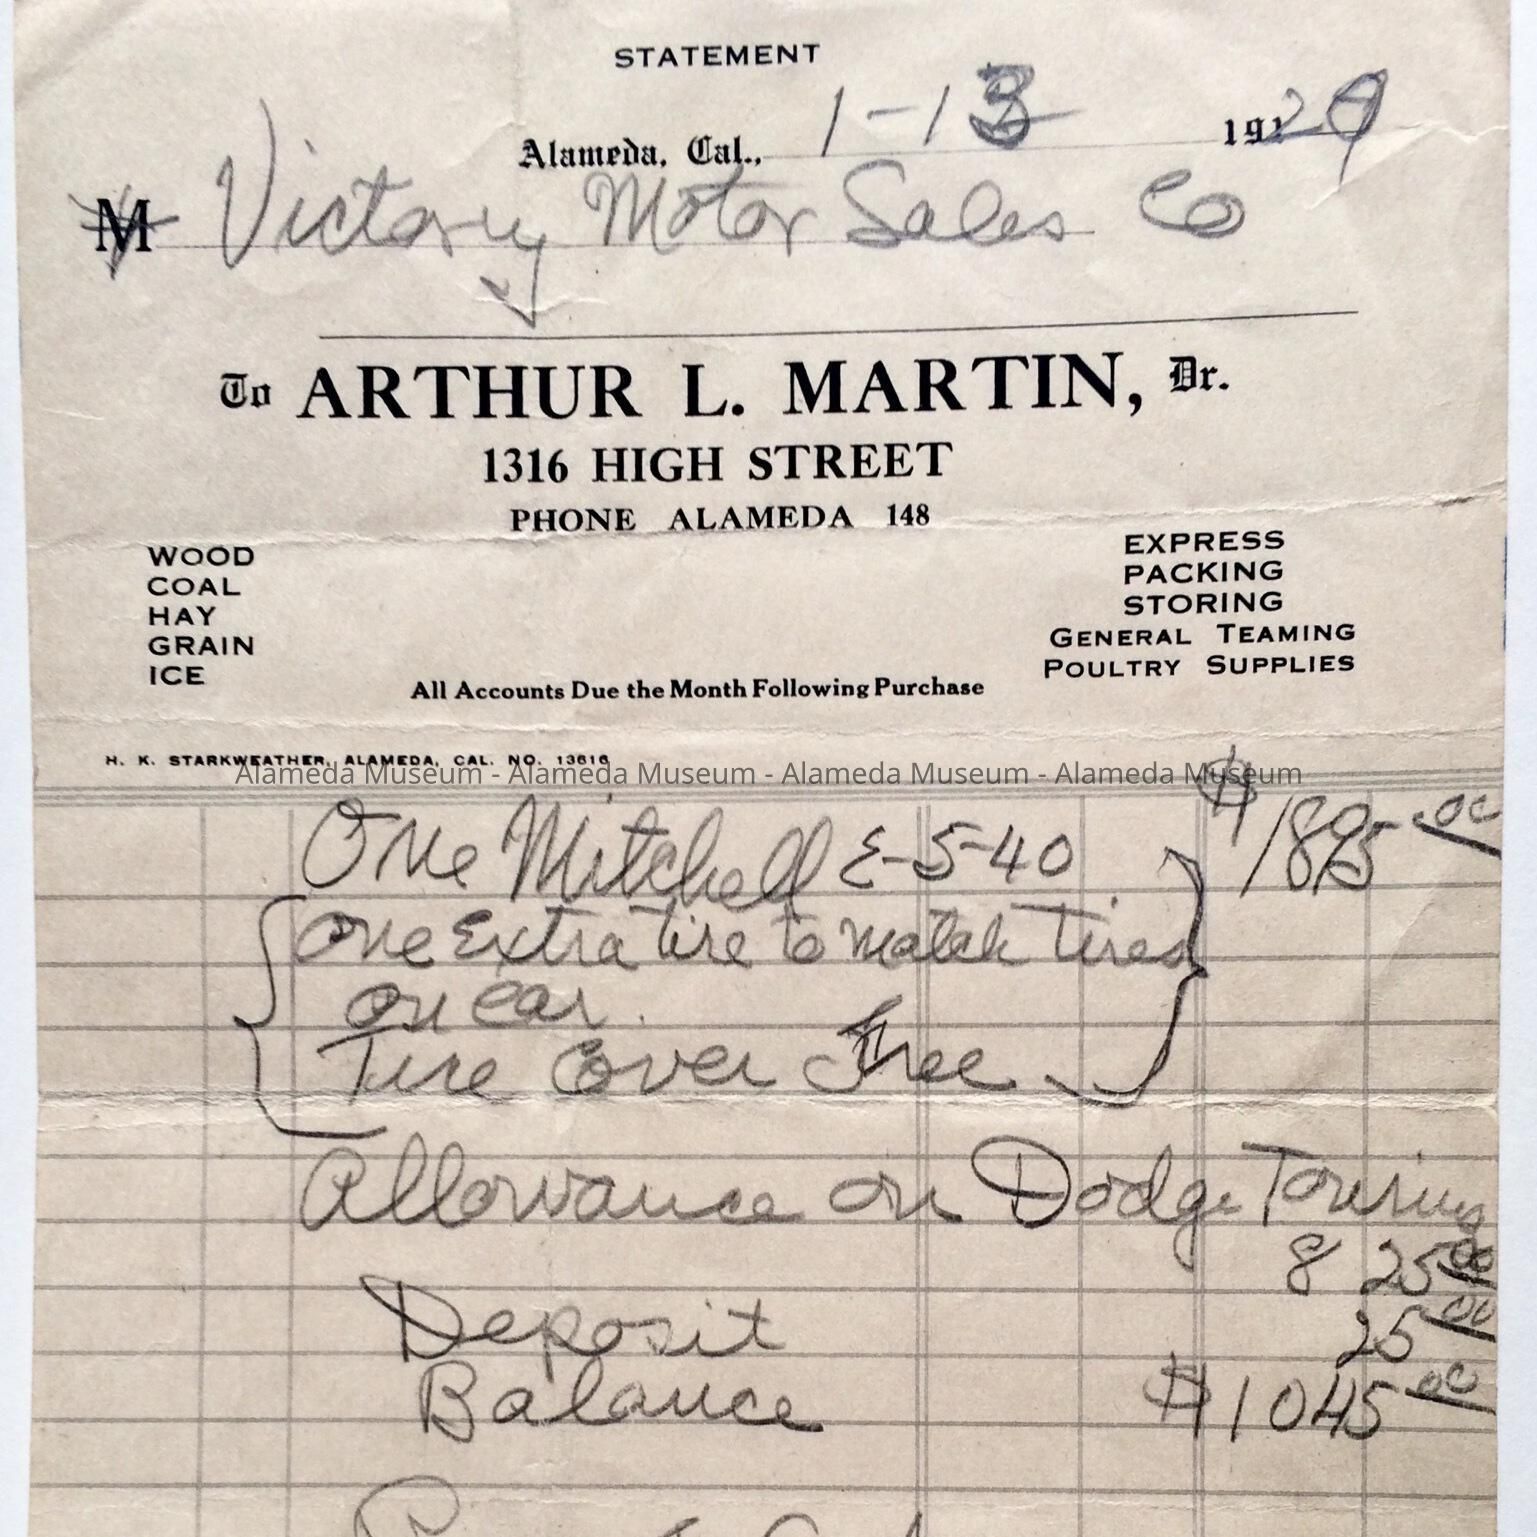 STATEMENT
Alameda, Cal., 1-13 1929
M Victory Motor Sales Co
To ARTHUR L. MARTIN, Dr.
1316 HIGH STREET
PHONE ALAMEDA 148
WOOD
COAL
HAY
GRAIN
ICE
EXPRESS
PACKING
STORING
GENERAL TEAMING
POULTRY SUPPLIES
All Accounts Due the Month Following Purchase
H. K. STARKWEATHER, ALAMEDA, CAL. NO. 13616
Alameda Museum - Alameda Museum - Alameda Museum - Alameda Museum
One Mitchell E-5-40 $1895.00
One Extra tire to match tires
on car.
Tire Cover Free
Allowance on Dodge Touring
825 00
Deposit 25 00
Balance $1045 00